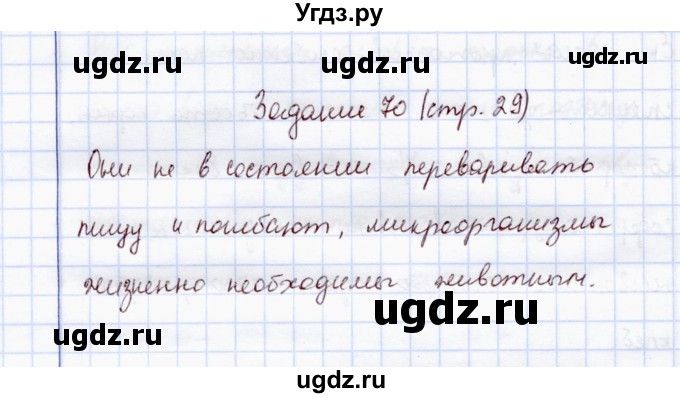 Угдз.ру
ugdz.ru ugdz.ru
Задание 70 (стр. 29)
Они не в состоянии переваривать
ugdz.ru
пищу и погибают, микроорганизмы
жизненно необходимы животным.
ugdz.ru ugdz.ru
ugdz.ru